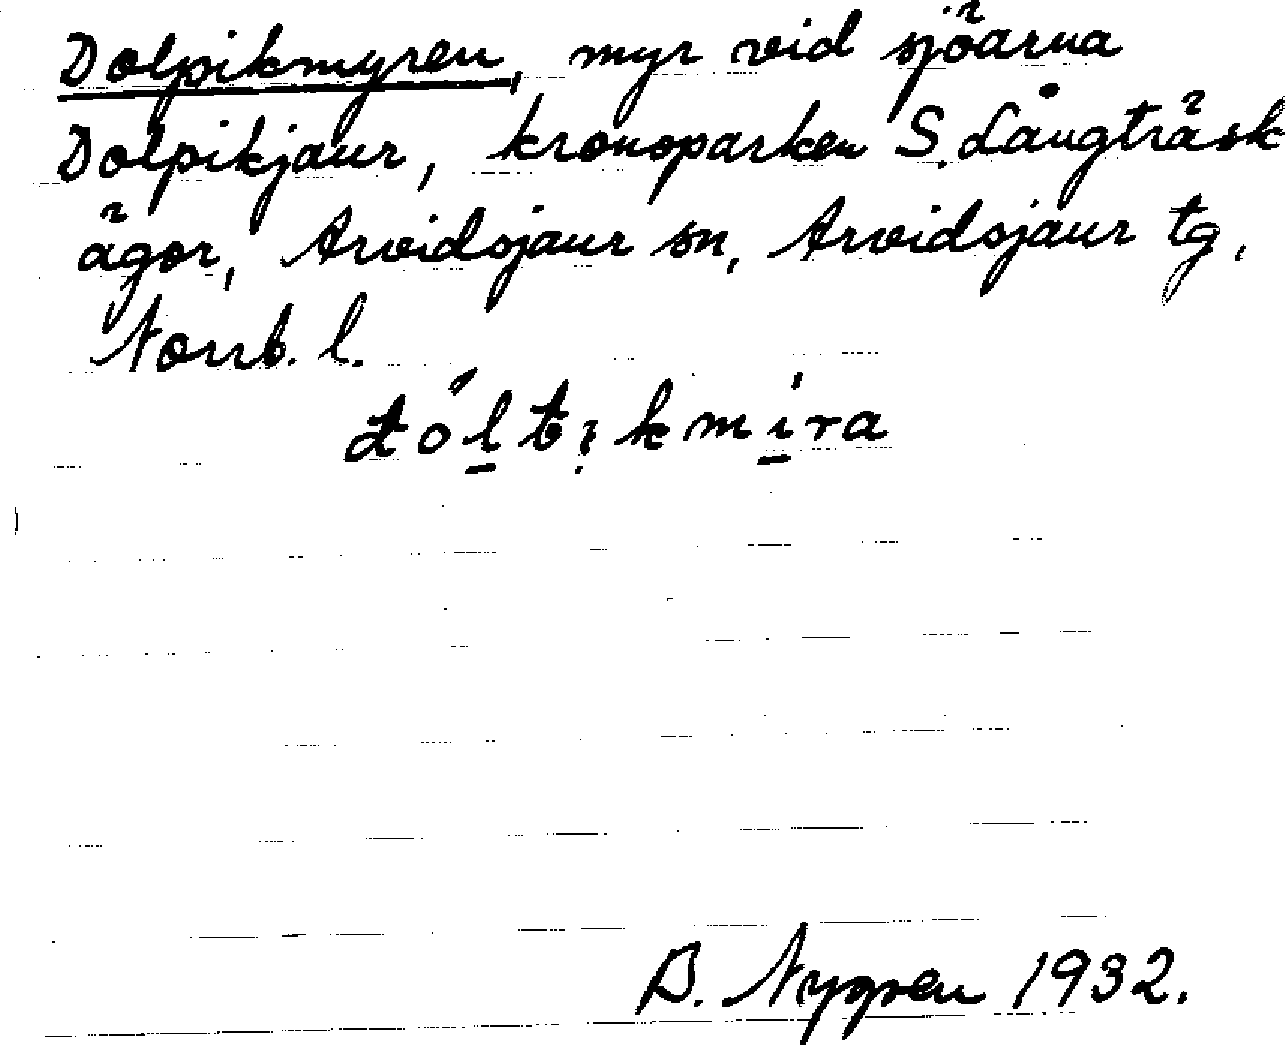 Dolpikmyren, myr vid sjöarna
Dolpikjaur, kronoparken S. Långträsk
ägor, Arvidsjaur sn, Arvidsjaur tg,
Norrb. l.
B. Nygren 1932.